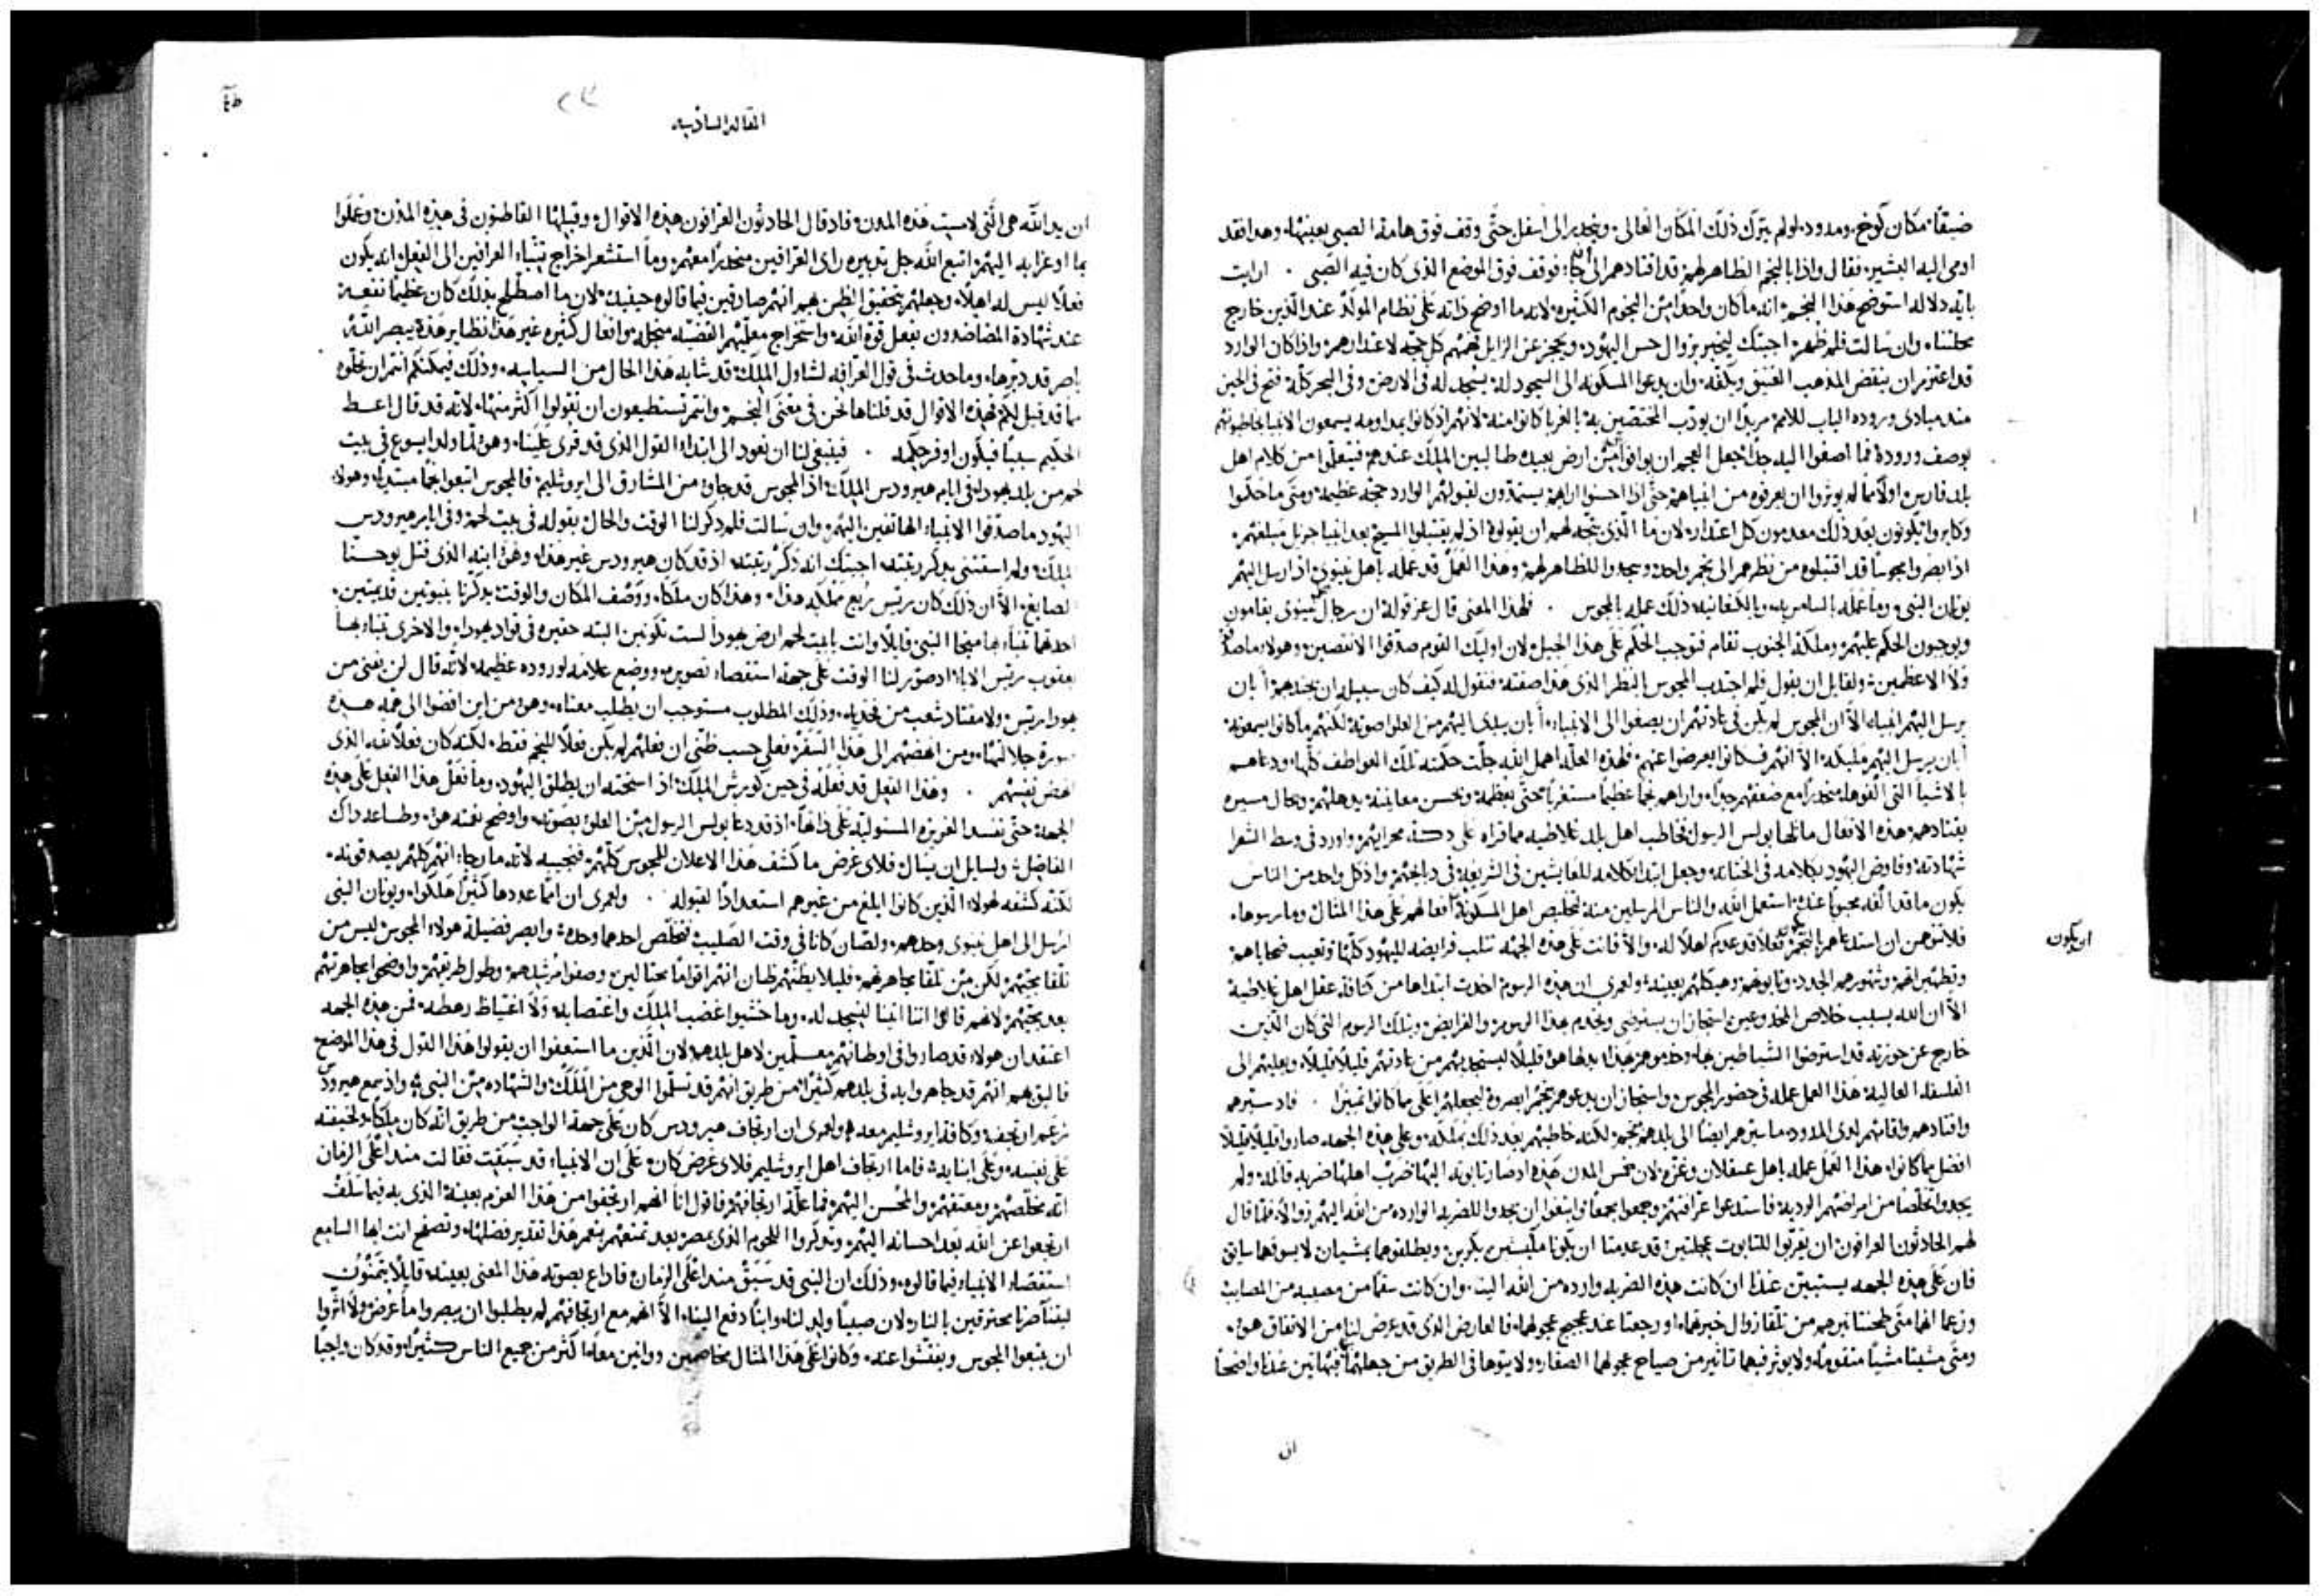 ضيقاً مكان كوخ ومدود لو لم يترك ذلك المكان العالي وينحدر الى اسفل حتَّى وقف فوق هامة الصبي بعينها وهذا فقد
اومى اليه البشير فقال واذا بالنجم الظاهر لهم قد اقتادهم الى ان جا فوقف فوق الموضع الذى كان فيه الصَّبى . ارايت
بايه دلاله استوضح هذا النجم انه ما كان واحدًا من النجوم الكثيره لانه ما اوضح ذاته على نظام المولد عند الذين خارج
محلتنا وان سالت فلم ظهر اجبتك ليخبر بزوال حس اليهود ويحجز عن الزايل فهم كل حجه لاعتذارهم واذا كان الوارد
قد اعتزم ان ينقض المذهب العتيق ويكفه وان يدعوا المسكونه الى السجود له يسجد له في الارض وفى البحر كله فتح في الحين
منذ مبادى وروده الباب للامم مريدًا ان يودب المختصين به بالغربا كانوا منه لانهم اذ كانوا بمداومه يسمعون الانبيا يخاطبونهم
بوصف وروده فما اصغوا اليه جدًا جعل العجم ان يوافوا من ارض بعيده طالبين الملك عندهم فيتعلموا من كلام اهل
بلد فارس اولًا ما لم يوثروا ان يعرفوه من انبياهم حتَّى اذا احسنوا اراهم يستمدون لقبولهم الوارد حجه عظيمه ومتى ما خالفوا
وكابروا يكونون بعد ذلك معدمون كل اعتذار لان ما الذى يتجه لهم ان يقولوه اذ لم يقتبلوا المسيح بعد انبيا جزيل مبلغهم
اذا بصروا مجوسا قد اقتبلوه من نظرهم الى نجم واحد وسجدوا للظاهر لهم وهذا العمل قد عمله باهل نينوى اذ ارسل اليهم
يونان النبى وما عمله بالسامريه وبالكنعانيه ذلك عمله بالمجوس . فلهذا المعنى قال عز قوله ان رجال نينوى يقامون
ويوجبون الحكم عليهم وملكة الجنوب تقام فتوجب الحكم على هذا الجيل لان اوليك القوم صدقوا الانقصين وهولاء ما صدقوا
ولا الاعظمين ولقايل ان يقول فلم اجتذب المجوس بالنظر الذى هذا صفته فنقول له كيف كان سبيله ان يجتذبهم أ بان
يرسل اليهم انبياء الا ان المجوس لم يكن في عادتهم ان يصغوا الى الانبياء أ بان يبدى اليهم من العلو صوته لكنهم ما كانوا يسمعونه
أ بان يرسل اليهم مليكه الا انهم كانوا يعرضوا عنهم فلهذه العله اهمل الله جلت حكمته تلك العواطف كلها ودعاهم
بالاشيا التى الفوها منحدرًا مع ضعفهم جدًا واراهم نجمًا عظيمًا مستغربًا حتَّى بعظمه وبحسن معاينته يدهلهم وبحال مسيره
يقتادهم هذه الافعال ماثلها بولس الرسول
شهادته وفاوض اليهود بكلامه فى الختانه وجعل ابتدا كلامه للعايشين فى الشريعه فى دبايحهم واذ كل واحد من الناس
يكون ما قد الفه محبوبًا عنده استعمل الله والناس المرسلين منه لتخليص اهل المسكونه افعالهم على هذا المثال وما رسوها
فلا تتوهمن ان استدعاهم بالنجم فعلا قد عدمكم اهلًا له والا فانت على هذه الجهه تثلب فرايضه لليهود كلها وتعيب ضحاياهم
ان يكون
وتطهيراتهم وشهورهم الجدد وتابوتهم وهيكلهم بعينه ولعمرى ان هذه الرسوم اخذت ابتداها من كثافة عقل اهل
الا ان الله بسبب خلاص المخدوعين استجاز ان يسترضى ويخدم بهذا الرسوم والفرايض وبتلك الرسوم التى كان الذين
خارج عن حوزته قد استرضوا الشياطين بها وحدهم قليلًا ليستجذبهم من عادتهم قليلًا قليلًا ويعليهم الى
الفلسفه العاليه هذا العمل عمله فى حضور المجوس واستجاز ان يدعوهم بنجم ابصروه ليجعلهم اعلى ما كانوا تميزًا . فاذ سيرهم
واقتادهم واقامهم لدى المدود ما سيرهم ايضًا الى بلدهم بنجم لكنه خاطبهم بعد ذلك بملكه وعلى هذه الجهه صاروا قليلًا قليلًا
افضل مما كانوا هذا العمل عمله باهل عسقلان وغزه لان خمس المدن هذه اذ صار تابوته اليها ضرب اهلها ضربه قاتله ولم
يجدوا تخلصًا من امراضهم الرديه فاستدعوا عرافينهم وجمعوا جمعًا وابتغوا ان يجدوا للضربه الوارده من الله اليهم زوالًا فلما قال
لهم الحادثون العرافون ان يقربوا للتابوت عجلتين قد عدمتا ان يكونا مليتين بكرين ويطلقوهما يمشيان لا يسوقهما سايق
فان على هذه الجهه يستبين عندنا ان كانت هذه الضربه وارده من الله الينا وان كانت سقمًا من مصيبه من المصايب
وزعما انهما متى طحنتا نيرهم من تلقا زوال خبرتهما او رجعتا عند عجيج عجولهما فالعارض الذى قد عرض لنا من الاتفاق هو
ومتى مشيتا مشيًا متقومًا ولا يوثر فيهما تاثير من صياح عجولهما الصغار ولا يتوها فى الطريق من جهلهما فيهاتين عندنا واضحًا
ان
المقاله السادسه
ان يد الله هى التى لامست هذه المدن فاذ قال الحادثون العرافون هذه الاقوال وقبلها القاطنون فى هذه المدن وعملوا
بما اوعزا به اليهم اتبع الله جل تدبيره راى العرافين منحدرًا معهم وما استشعر اخراج تنبياء العرافين الى الفعل انه يكون
فعلًا ليس له اهلًا وجعلهم بتحقيق الظن بهم انهم صادقين فيما قالوه حينيذ لان ما اصطلح بذلك كان عظيمًا نفعه
عند شهادة المضاددون بفعل قوة الله واستخراج معلميهم القضيه
باصر قد دبرها وما حدث فى قول العرافه لشاول الملك قد شابه هذا الحال من السبابيه وذلك فيمكنكم انتم ان تحلوه
ما قد قيل لكم فهذه الاقوال قد قلناها نحن فى معنى النجم وانتم تستطيعون ان تقولوا اكثر منها لانه قد قال اعط
الحكيم سببًا فيكون اوفر حكمه . فينبغى لنا ان نعود الى ابتداء القول الذى قد قرى علينا وهو لما ولد ايسوع فى بيت
لحم من بلد يهودا فى ايام هيرودس الملك اذا المجوس قد جاوا من المشارق الى ايروشليم فالمجوس اتبعوا نجمًا مبتديا وهولاء
اليهود ما صدقوا الانبياء الهاتفين اليهم وان سالت فلم ذكر لنا الوقت والحال بقوله فى بيت لحم وفى ايام هيرودس
الملك ولم استثنى بذكر رتبته اجبتك انه ذكر رتبته اذ قد كان هيرودس غير هذا وهو ابنه الذى قتل يوحنا
الصابغ الا ان ذلك كان ريس ربع مملكه هذا وهذا كان ملكًا ووصف المكان والوقت بذكرنا بنبوتين قديمتين
احدهما تنباء بها ميخا النبى قايلًا وانت يا بيت لحم ارض يهودا لست تكونين البته حقيره فى قواد يهودا والاخرى تنباء بها
يعقوب ريس الاباء اذ صور لنا الوقت على جهة استقصاء تصويره ووضع علامه لوروده عظيمه لانه قال لن يفنى من
يهودا ريس ولا مقتاد شعب من فخذيه وذلك المطلوب مستوجب ان يطلب معناه وهو من اين افضوا الى فهم هذه
سورة جلالتها ومن انهضهم الى هذا السفر فعلى حسب ظنى ان فعلهم لم يكن فعلًا للنجم فقط لكنه كان فعلًا لله الذى
انهض نفسهم . وهذا الفعل قد فعله فى حين كورش الملك اذ استحثه ان يطلق اليهود وما فعل هذا الفعل على هذه
الجهه حتى تفسد الغريزه المستوليه على ذاتها اذ قد دعا بولس الرسول من العلو بصوته واوضح نعمته هو وطاعه ذاك
الفاضل ولسايل ان يسال فلاى غرض ما كشف هذا الاعلان للمجوس كلهم فنجيبه لانه ما رجاء انهم كلهم يصدقونه
لكنه كشفه لهولاء الذين كانوا ابلغ من غيرهم استعدادًا لقبوله . ولعمرى ان امما عددها كثيرًا هلكوا ويونان النبى
ارسل الى اهل نينوى وحدهم ولصان كانا فى وقت الصليب فتخلص احدهما وحده وابصر فضيلة هولاء المجوس ليس من
تلقا مجيهم لكن من تلقا مجاهرتهم فليلا يظنهم ظان انهم اقوامًا محتالين وصفوا مرشدهم وطول طريقهم واوضحوا مجاهرتهم
بعد مجيهم لانهم قالوا اننا اتينا لنسجد له وما خشيوا غضب الملك واغتصابه ولا اغتياظ رهطه فمن هذه الجهه
اعتقد ان هولاء قد صاروا فى اوطانهم معلمين لاهل بلدهم لان الذين ما استعفوا ان يقولوا هذا القول فى هذا الموضع
فاليق بهم انهم قد جاهروا به فى بلدهم كثيرًا من طريق انهم قد تسلموا الوحى من الملك والشهاده من النبى واذ سمع هيرودس
زعم ارتجف وكافة ايروشليم معه ولعمرى ان ارتجاف هيرودس كان على جهة الواجب من طريق انه كان ملكًا ولخيفته
على نفسه وعلى ابنايه فاما ارتجاف اهل ايروشليم فلاى غرض كان على ان الانبياء قد سبقت فقالت منذ اعلى الزمان
انه مخلصهم ومعتقهم والمحسن اليهم فما علة ارتجافهم فاقول انا انهم ارتجفوا من هذا العزم بعينه الذى به فيما سلف
ارتجعوا عن الله بعد احسانه اليهم وتذكروا اللحوم الذى بمصر بعد تمتعهم بنعم هذا تقدير فضلها وتصفح انت ايها السامع
استقصاء الانبياء فيما قالوه وذلك ان النبى قد سبق منذ اعلى الزمان فاذاع بصوته هذا المعنى بعينه قايلًا يتمنون
ليتنا صرنا محترقين بالنار لان صبيًا ولد لنا وابنًا دفع الينا الا انهم مع ارتجافهم لم يطلبوا ان يبصروا ما عرض ولا اثروا
ان يتبعوا المجوس ويفتشوا عنه وكانوا على هذا المثال مخاصمين ووانين معًا اكثر من جميع الناس كثيرًا وقد كان واجبًا